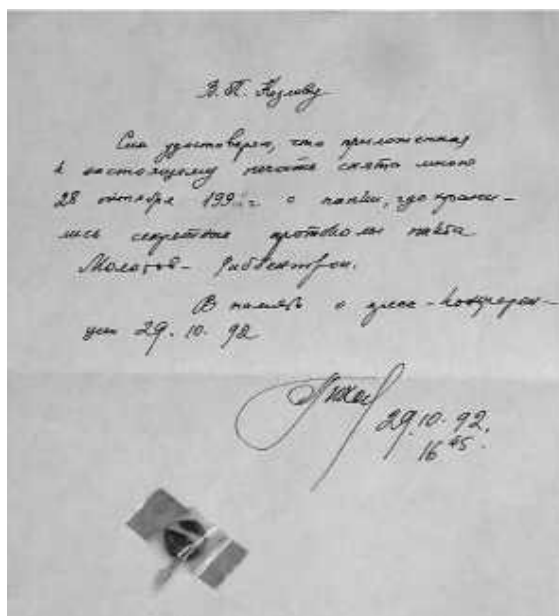 В. П. Козлову
Сим удостоверяю, что приложенная
к настоящему печать снята мною
28 октября 199 г. с папки, где храни-
лись секретные протоколы пакта
Молотов - Риббентроп.
В память о пресс-конферен-
ции 29. 10. 92
29.10.92.
16 45.